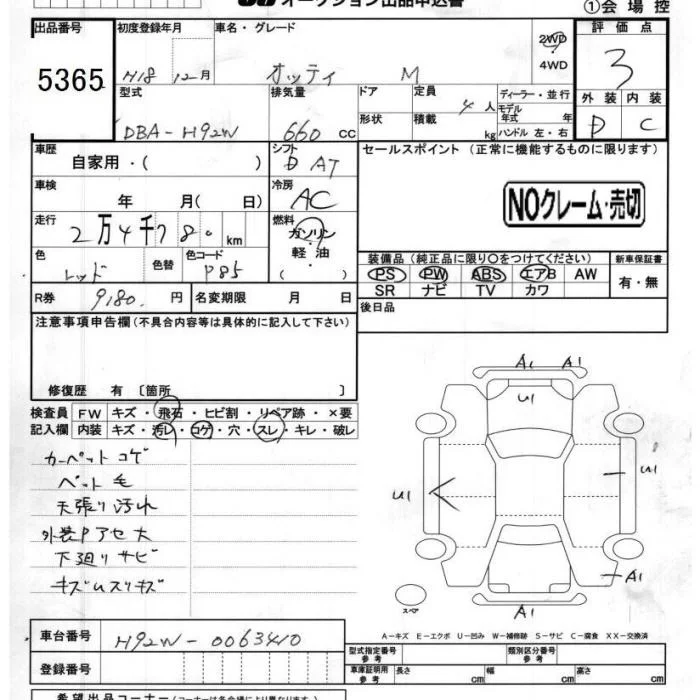 オークション出品申込書
①会場控
出品番号 初度登録年月 車名・グレード 2WD 評価点
5365 H18 12月 オッティ M 4WD 3
型式 排気量 ドア 定員 4人 ディーラー・並行 外装 内装
DBA-H92W 660cc 形状 積載 kg モデル年式 年 ハンドル 左・右 D C
車歴 シフト セールスポイント (正常に機能するものに限ります)
自家用・( ) D AT
車検 冷房
年 月( 日) AC NOクレーム・売切
走行 燃料
2万4千780km ガソリン
軽油
( )
色 色替 色コード 装備品 (純正品に限り○をつけてください) 新車保証書
レッド P85 PS PW ABS エアB AW 有・無
SR ナビ TV カワ
R券 9,180.円 名変期限 月 日 後日品
注意事項申告欄 (不具合内容等は具体的に記入して下さい)
修復歴 有 〔箇所 〕
検査員 FW キズ・飛石・ヒビ割・リペア跡・×要
記入欄 内装 キズ・汚レ・コゲ・穴・スレ・キレ・破レ
カーペットコゲ
ペット毛
天張り汚れ
外装Pアセ大
下廻りサビ
キズムスリキズ
A1 A1
U1
U1 U1
A1
A1
スペア
A-キズ E-エクボ U-凹み W-補修跡 S-サビ C-腐食 XX-交換済
車台番号 H92W-0063410 型式指定番号 参考 類別区分番号 参考
登録番号 車庫証明用 参考 長さ cm 幅 cm 高さ cm
希望出品コーナー